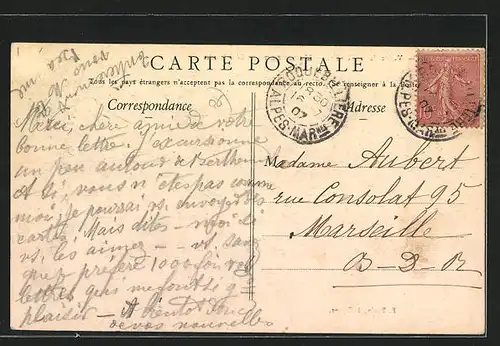 CARTE POSTALE
Tous les pays étrangers n'acceptent pas la correspondance au recto. Se renseigner à la poste
Correspondance
Adresse
Merci, chère amie de votre
bonne lettre. J'excursionne
un peu autour de Berthem
et si, vous n'êtes pas comme
moi, je pourrai vs. envoyer des
cartes. Mais dites-moi si
vs. les aimez — vs. savez
que je préfère 1000 fois vos
lettres
plaisir — A bientôt donc
de vos nouvelles
Madame Aubert
rue Consolat 95
Marseille
B-D-R
ROQUEBILLIERE
07
ALPES-MARmes
10